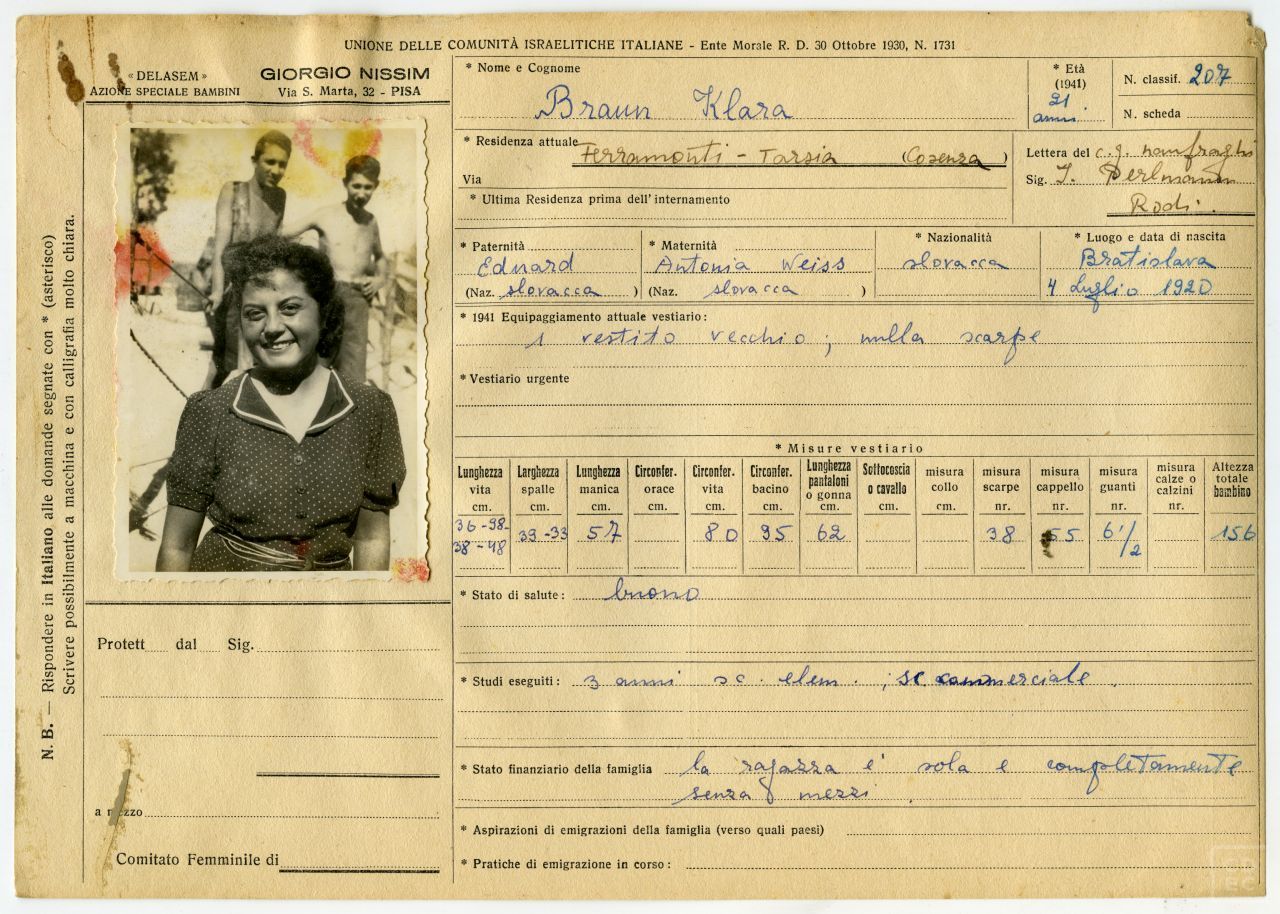 UNIONE DELLE COMUNITÀ ISRAELITICHE ITALIANE - Ente Morale R. D. 30 Ottobre 1930, N. 1731
« DELASEM »
AZIONE SPECIALE BAMBINI
GIORGIO NISSIM
Via S. Marta, 32 - PISA
N. B. — Rispondere in Italiano alle domande segnate con * (asterisco)
Scrivere possibilmente a macchina e con calligrafia molto chiara.
* Nome e Cognome
Braun Klara
* Età
(1941)
21
anni
N. classif. 207
N. scheda
* Residenza attuale Ferramonti - Tarsia (Cosenza)
Via
* Ultima Residenza prima dell'internamento
Lettera del c. g. naufraghi
Sig. I. Perlmann
Rodi.
* Paternità
Eduard
(Naz. slovacca )
* Maternità
Antonia Weiss
(Naz. slovacca )
* Nazionalità
slovacca
* Luogo e data di nascita
Bratislava
4 Luglio 1920
* 1941 Equipaggiamento attuale vestiario:
1 vestito vecchio; nulla scarpe
* Vestiario urgente
* Misure vestiario
Lunghezza vita cm. 36-98- 38-48
Larghezza spalle cm. 39-33
Lunghezza manica cm. 57
Circonfer. orace cm.
Circonfer. vita cm. 80
Circonfer. bacino cm. 95
Lunghezza pantaloni o gonna cm. 62
Sottocoscia o cavallo cm.
misura collo cm.
misura scarpe nr. 38
misura cappello nr. 55
misura guanti nr. 6 1/2
misura calze o calzini nr.
Altezza totale bambino 156
* Stato di salute: buono
* Studi eseguiti: 3 anni sc. elem. ; sc commerciale.
* Stato finanziario della famiglia la ragazza e' sola e completamente
senza mezzi.
* Aspirazioni di emigrazioni della famiglia (verso quali paesi)
* Pratiche di emigrazione in corso:
Protett dal Sig.
a mezzo
Comitato Femminile di